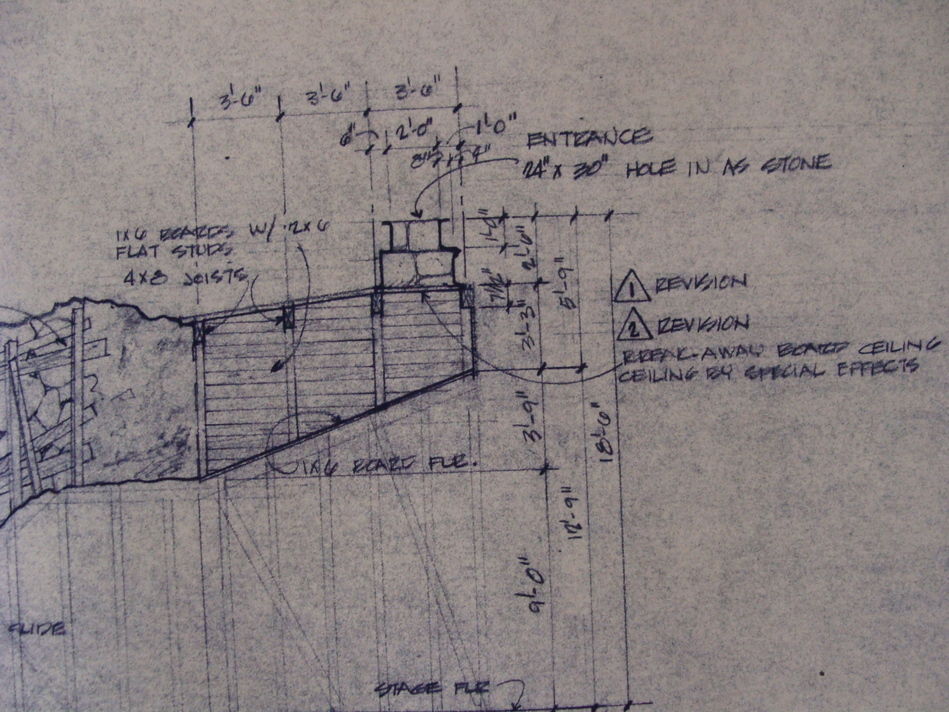 3'-6" 3'-6" 3'-6"
6" 2'-0" 1'-0"
8" 4"
ENTRANCE
24" x 30" HOLE IN AS STONE
1x6 BOARDS W/ 2x6
FLAT STUDS
4x8 JOISTS
1'-0"
2'-6"
7 1/2"
3'-3"
5'-9"
1 REVISION
2 REVISION
BREAK-AWAY BOARD CEILING
CEILING BY SPECIAL EFFECTS
3'-9"
18'-6"
1x6 BOARD FLR.
12'-9"
9'-0"
SLIDE
STAGE FLR